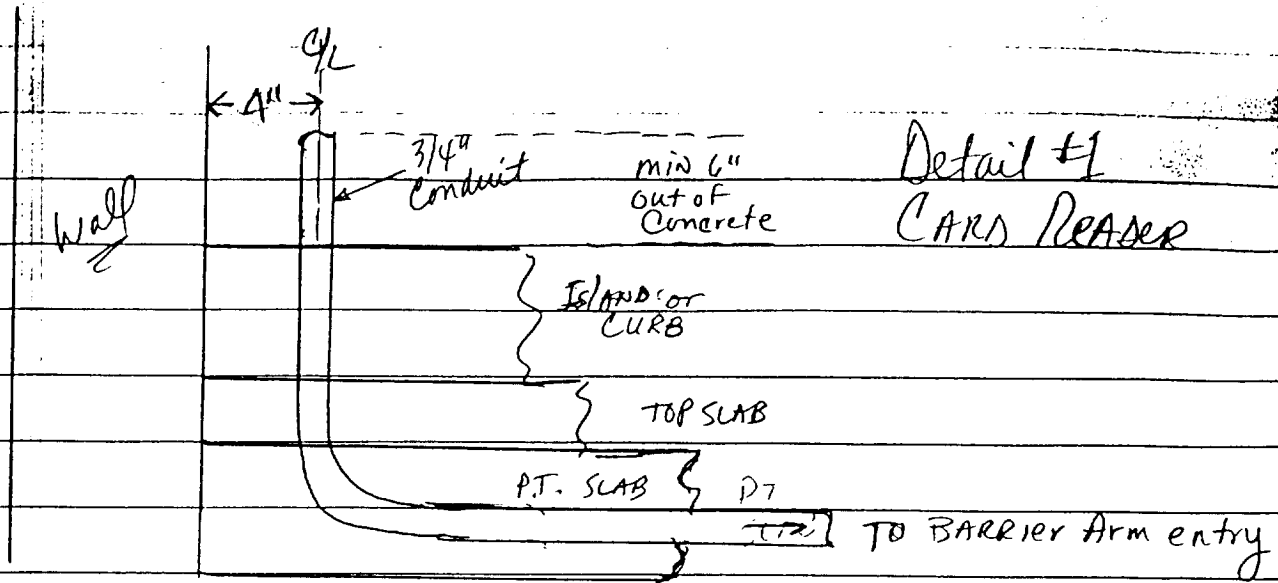 C/L
4"
3/4"
conduit
min 6"
out of
Concrete
Detail #1
CARD READER
Wall
ISLAND or
CURB
TOP SLAB
P.T. SLAB
D7
TO BARRIER Arm entry